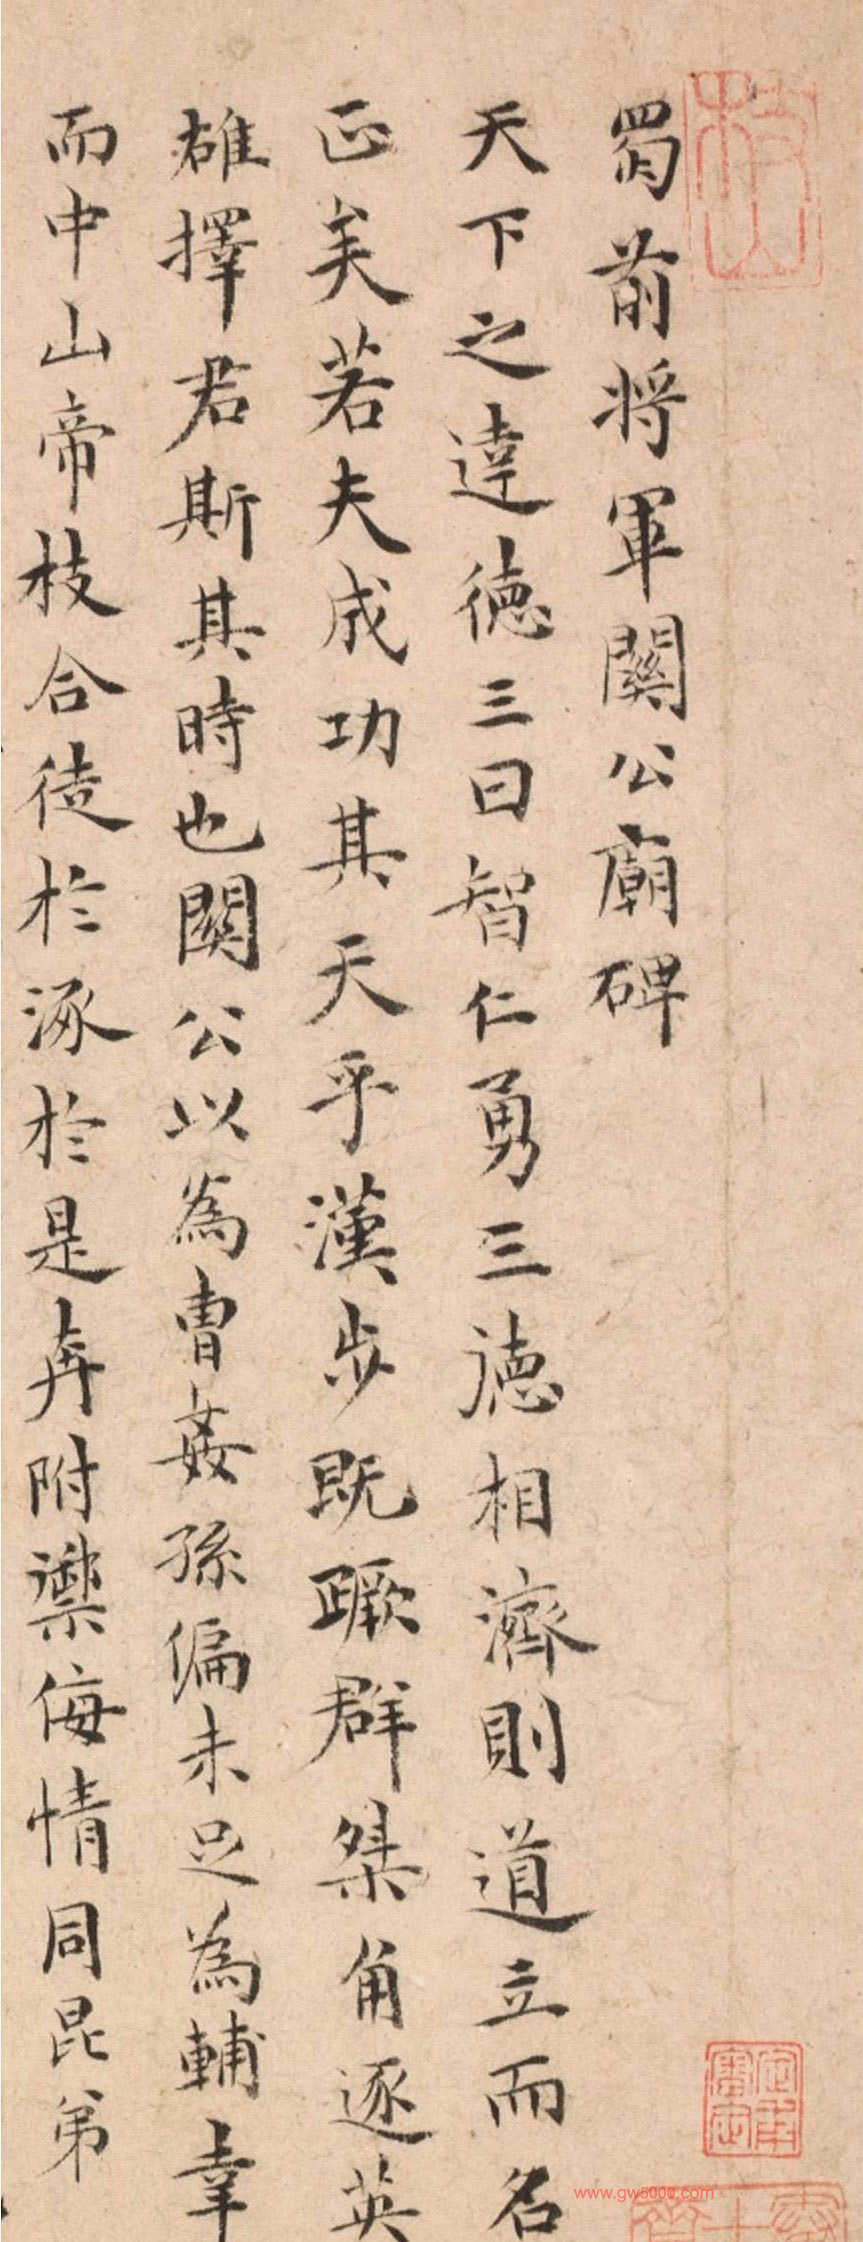 蜀前将軍關公廟碑
天下之達德三曰智仁勇三德相濟則道立而名
正矣若夫成功其天乎漢步既蹶群桀角逐英
雄擇君斯其時也關公以為曹姦孫偏未足為輔幸
而中山帝枝合徒於涿於是奔附禦侮情同昆弟
枝山
www.gw5000.com